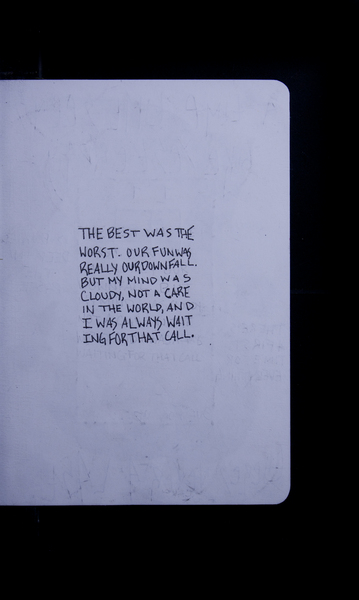 THE BEST WAS THE
WORST. OUR FUN WAS
REALLY OUR DOWNFALL.
BUT MY MIND WAS
CLOUDY, NOT A CARE
IN THE WORLD, AND
I WAS ALWAYS WAIT
ING FOR THAT CALL.